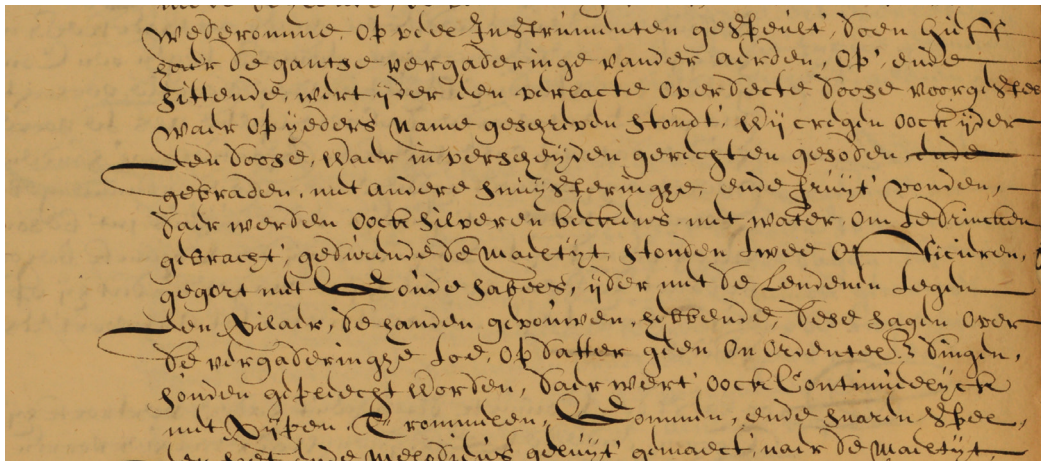 wederomme, op veel Instrumenten gespeult, doen hieff
haer de gantse vergaderinge vander aerden, op, ende
sittende, wert yder een verlacte overdecte doose voorgestel
waer op yeders name geschreven stondt, Wij cregen oock yder
een doose, waer in verscheyden gerechten gesoden ende
gebraden, met andere snuysteringhe, ende fruyt vonden,
daer werden oock silveren beckens met water, om te drincken
gebracht, gedurende de maeltyt, stonden twee officieren,
gegort met Goude sabels, yder met de Lendenen tegen
een Pilaer, de handen gevouwen, hebbende, dese sagen over
de vergaderinghe toe, op datter geen onordentel. dingen,
souden gepleecht worden, daer wert oock Continuelyck
met Pijpen, Trommelen, Gommen, ende snaren spel,
een soet ende melodieus geluyt gemaect, naer de maeltyt,